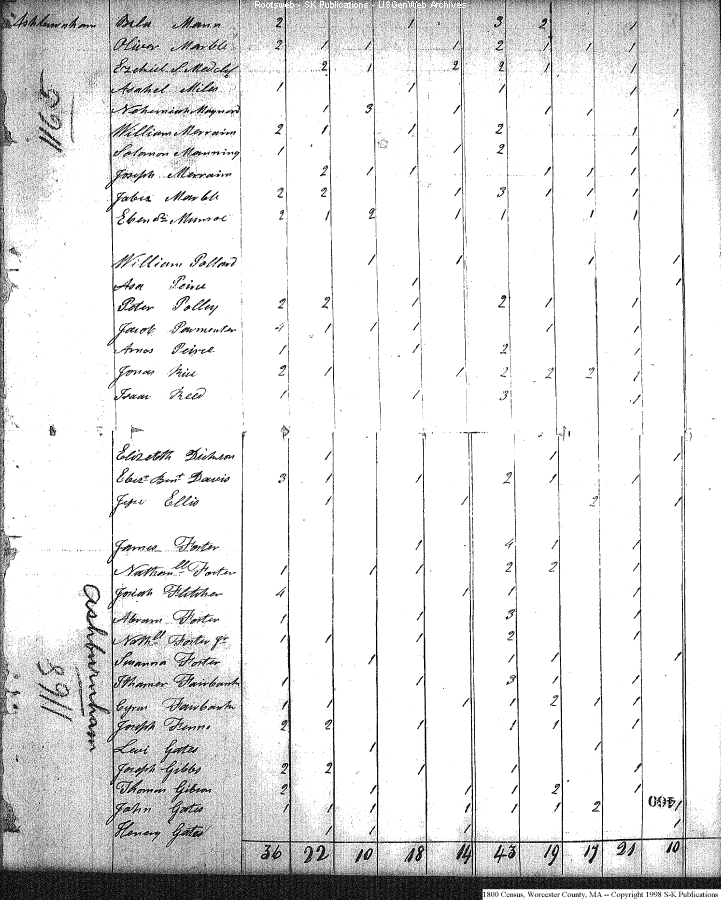 Rootsweb - SK Publications - USGenWeb Archives
Ashburnham Bela Mann 2 1 3 2 1
Oliver Marble 2 1 1 1 2 1 1 1
Ezekiel S. Medclf 2 1 2 2 1 1
Asahel Miles 1 1 1 1
Nehemiah Maynard 1 3 1 1 1 1
William Merraim 2 1 1 2 1
Solomon Manning 1 1 2 1
Joseph Merraim 2 1 1 1 1 1
Jabez Marble 2 2 1 3 1 1 1
Ebenr Munroe 2 1 2 1 1 1 1
William Pollard 1 1 1 1
Asa Peirce 1 1
Peter Polley 2 2 1 2 1 1
Jacob Parmenter 4 1 1 1 1 1
Amos Peirce 1 1 2 1
Jonas Rice 2 1 1 2 2 2 1
Isaac Reed 1 1 3 1
Elizebth Dickson 1 1 1
Ebezr Davis 3 1 1 2 1 1
Jesse Ellis 1 1 2 1
James Forter 1 4 1 1
Nathanll Forter 1 1 1 2 2 1
Josiah Fletcher 4 1 1 1
Abram Forter 1 1 3 1
Nathll Forter Jr 1 1 1 2 1
Susanna Forter 1 1 1 1
Ithamer Fairbank 1 1 3 1 1
Cyrus Fairbank 1 1 1 1 2 1 1
Joseph Fenno 2 2 1 1 1 1
Levi Gates 1 1
Joseph Gibbs 2 2 1 1 1
Thomas Gibson 2 1 1 1 2 1
John Gates 1 1 1 1 1 1 2 1
Henery Gates 1 1 1 1
36 22 10 18 14 43 19 17 21 10
1165
1168
Ashburnham
400
1800 Census, Worcester County, MA -- Copyright 1998 S-K Publications